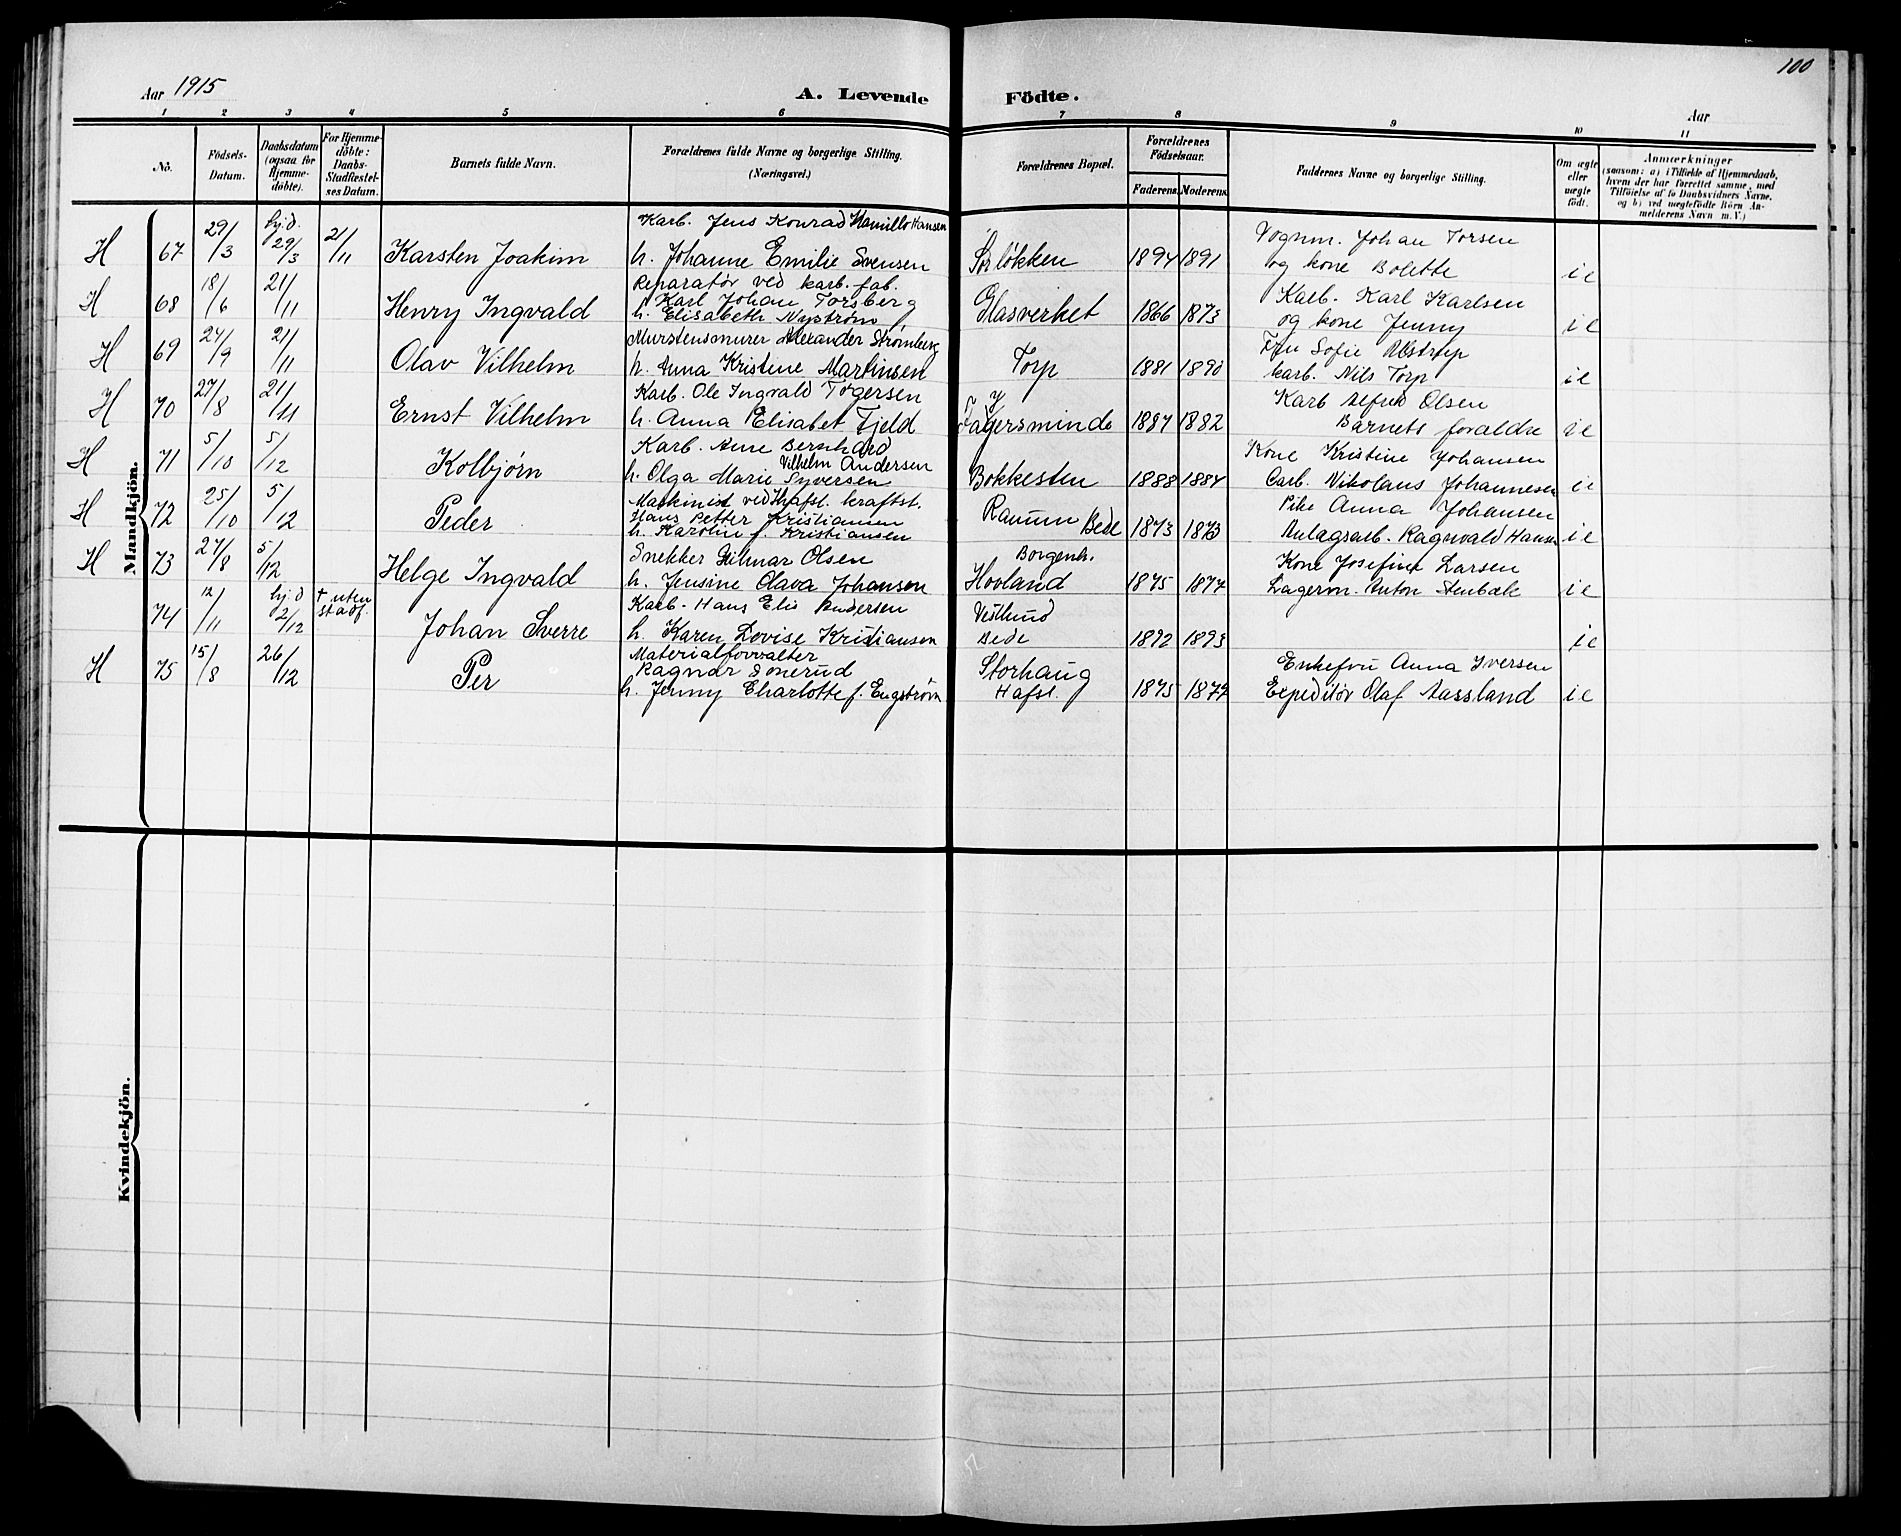 100
Aar 1915
A. Levende Födte.
Aar
1 2 3 4 5 6 7 8 9 10 11
No.
Födsels-Datum.
Daabsdatum (ogsaa for Hjemme-döbte).
For Hjemme-döbte: Daabs-Stadfæstel-ses Datum.
Barnets fulde Navn.
Forældrenes fulde Navne og borgerlige Stilling. (Næringsvei.)
Forældrenes Bopæl.
Forældrenes Födselsaar.
Faderens. Moderens.
Faddernes Navne og borgerlige Stilling.
Om ægte eller uægte födt.
Anmærkninger
(saasom: a) i Tilfælde af Hjemmedaab, hvem der har forrettet samme, med Tilföielse af to Daabsvidners Navne, og b) ved uegtefödte Börn An-melderens Navn m. V.)
Mandkjön.
H 67 29/3 hj.d. 29/3 21/11 Karsten Joakim
Karb. Jens Konrad Kamillo Hansen
h. Johanne Emilie Svensen
Sørløkken 1894 1891
Vognm. Johan Torsen
og kone Bolette ie
H 68 18/6 21/11 Henry Ingvald
Reparatør ved karb. fab.
Karl Johan Forsberg
h. Elisabeth Nystrøm
Glasverket 1866 1873
Karb. Karl Karlsen
og kone Jenny ie
H 69 24/9 21/11 Olav Vilhelm
Murstensmurer Alexander Strømberg
h. Anna Kristine Martinsen
Torp 1881 1890
Fru Sofie Alstrup
karb. Nils Torp ie
H 70 27/8 21/11 Ernst Vilhelm
Karb. Ole Ingvald Togersen
h. Anna Elisabet Fjeld
Fagersminde 1887 1882
Karb Alfred Olsen
Barnets foraldre ie
H 71 5/10 5/12 Kolbjørn
Karb. Arne Bernhard
Vilhelm Andersen
h. Olga Marie Syversen
Bokkesten 1888 1884
Kone Kristine Johansen
Carb. Nikolaus Johannesen ie
H 72 25/10 5/12 Peder
Maskinist ved Hafsl. kraftst.
Hans Petter Kristiansen
h. Karoline f. Kristiansen
Raum Bede 1873 1873
Pike Anna Johansen
Anlagsarb. Ragnvald Hansen ie
H 73 27/8 5/12 Helge Ingvald
Snekker Hilmar Olsen
h. Jensine Olava Johansen
Borgenh.
Hovland 1875 1877
Kone Josefine Larsen
Lagerm. Anton Stenbæk ie
74 12/11 hj.d 2/12 + uten stadf. Johan Sverre
Karb. Hans Elis Andersen
h. Karen Lovise Kristiansen
Vestlund
Bede 1892 1893 ie
H 75 15/8 26/12 Per
Materialforvalter
Ragnar Sonerud
h. Jenny Charlotte f. Engstrøm
Storhaug
Hafsl. 1875 1877
Enkefru Anna Iversen
Expeditør Olaf Aassland ie
Kvindekjön.